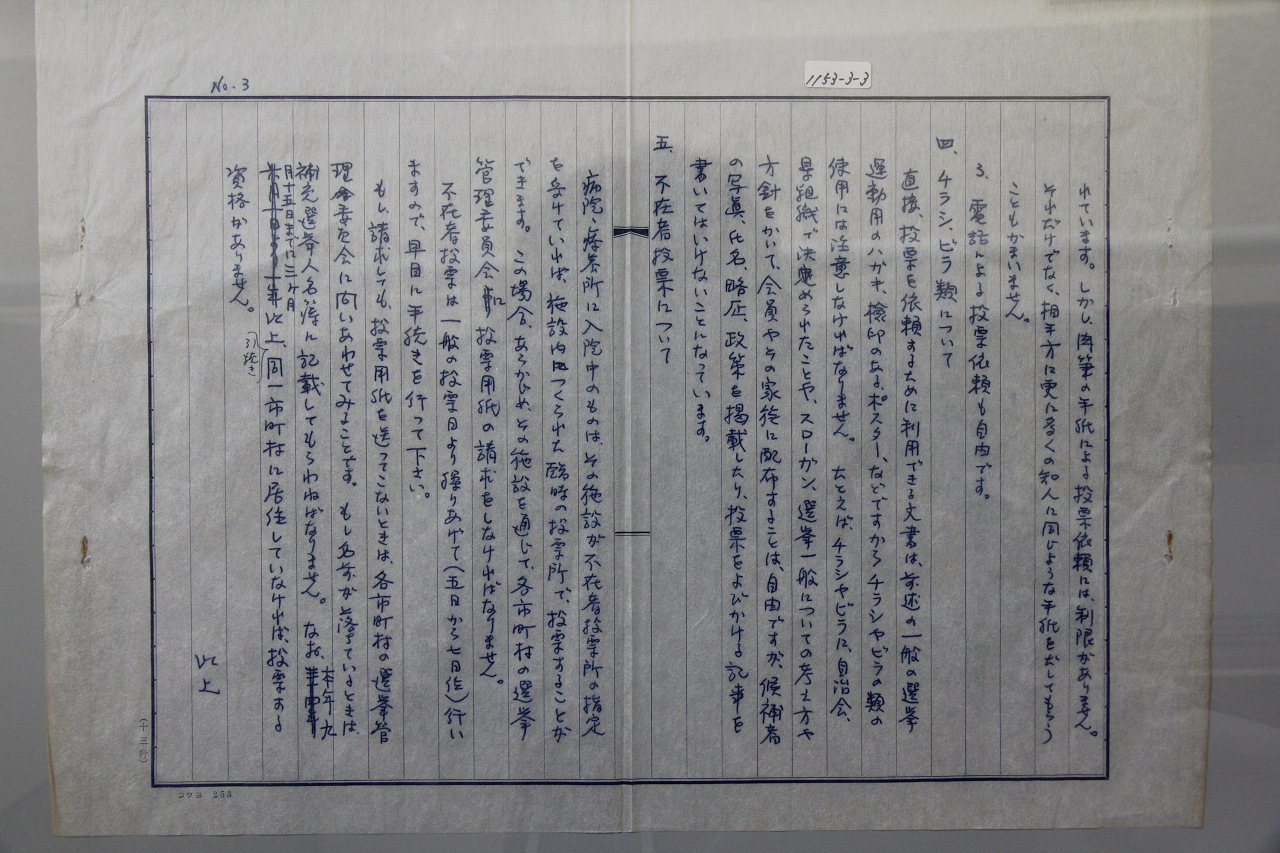 No.3
1153-3-3
れています。しかし、肉筆の手紙による投票依頼には、制限がありません。
それだけでなく、相手方に更に多くの知人に同じような手紙をだしてもらう
こともかまいません。
3、電話による投票依頼も自由です。
四、チラシ、ビラ類について
直接、投票を依頼するために利用できる文書は、前述の一般の選挙
運動用のハガキ、検印のある、ポスター、などですからチラシやビラの類の
使用には注意しなければなりません。たとえば、チラシやビラに、自治会、
県組織で決められたことや、スローガン、選挙一般についての考え方や
方針をかいて、会員やその家族に配布することは、自由ですが、候補者
の写真、氏名、略歴、政策を掲載したり、投票をよびかける記事を
書いてはいけないことになっています。
五、不在者投票について
病院・療養所に入院中のものは、その施設が不在者投票所の指定
を受けていれば、施設内につくられた臨時の投票所で、投票することが
できます。この場合、あらかじめ、その施設を通じて、各市町村の選挙
管理委員会に投票用紙の請求をしなければなりません。
不在者投票は一般の投票日より繰りあげて(五日から七日位)行い
ますので、早目に手続きを行って下さい。
もし、請求しても、投票用紙を送ってこないときは、各市町村の選挙管
理委員会に問いあわせてみることです。もし名前が落ちているときは、
補充選挙人名簿に記載してもらわねばなりません。なお、本年九
月十五日までに三ヶ月
以上、引続き、同一市町村に居住していなければ、投票する
資格がありません。
以上
(十三行)
コクヨ 253